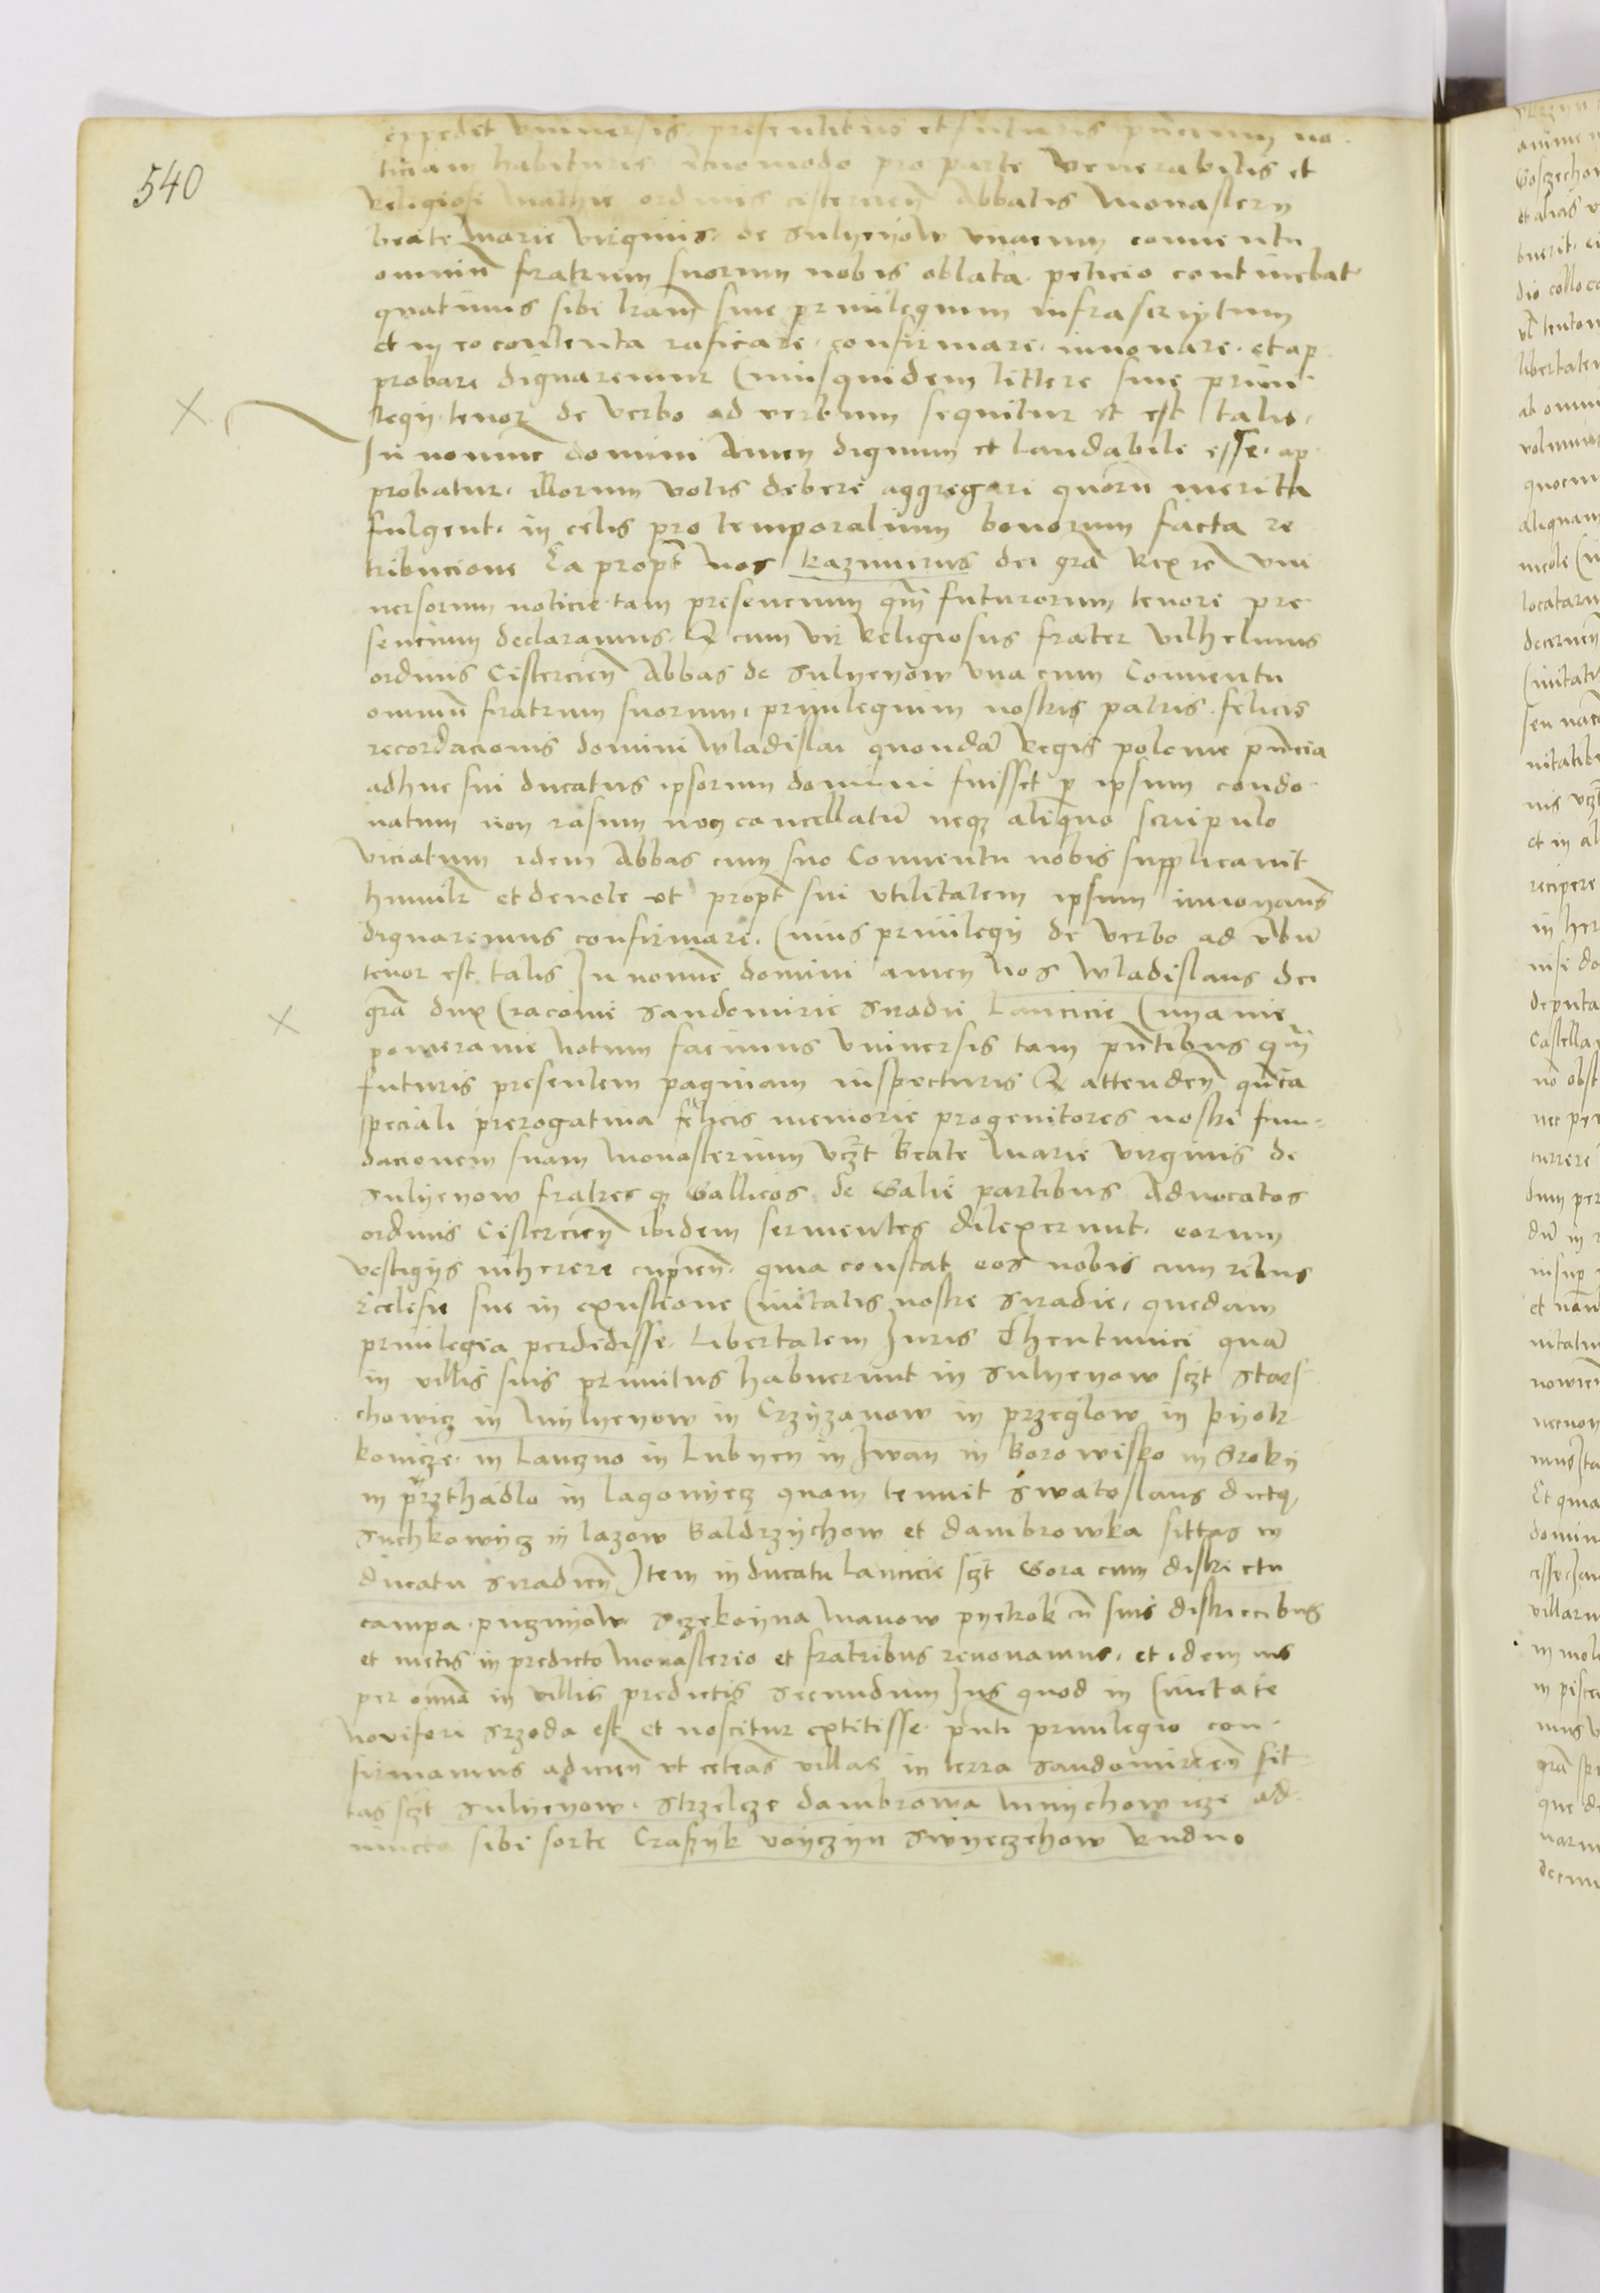 540
expedit universis presentibus et futuris pncium no
ticiam habituris quomodo pro parte venerabilis et
Religiosi Mathie ordinis cisterciens Abbatis Monasterij
beate Marie virginis de Sulyeyow unacum conventu
omniu fratrum suorum nobis oblata peticio continebat
quatinus sibi lram sive privilegium infrascriptum
et in eo contenta raficare confirmare innovare et ap
probare dignaremur Cuiusquidem littere sive privi
legij tenor de verbo ad verbum sequitur et est talis
In nomine domini Amen dignum et laudabile esse ap
probatur illorum votis debere aggregari quoru merita
fulgent in celis pro temporalium bonorum facta re
tribucione Ea propt Nos Kazimirus dei gra Rex re vni
versorum noticie tam presencium qm futurorum tenore pre
sencium declaramus Q cum vir Religiosus frater Vilhelmus
ordinis Cistercien Abbas de Sulyeyow vna cum Conventu
omniu fratrum suorum privilegium nostris patris felicis
recordacionis domini Wladislai quonda Regis polonie pncia
adhuc sui ducatus ipsorum domini fuisset p ipsum condo
natum non rasum non cancellatu neq aliquo scrupulo
viciatum idem Abbas cum suo Conventu nobis supplicavit
humilr et devote ut propt sui utilitatem ipsum innovans
dignaremus confirmare Cuius privilegij de verbo ad vbu
tenor est talis In nomie domini amen Nos Wladislaus dei
gra dux Cracovie Sandomirie Siradie Lancicie Cuyavie
pomeranie Notum facimus Universis tam pntibus qm
futuris presentem paginam inspecturis Q attenden qncia
speciali prerogativa felicis memorie progenitores nostri fun
dacionem suam Monasterium vczt Beate Marie virginis de
Sulyeyow fratres q Gallicos de Galie partibus Advocatos
ordinis Cistercien ibidem servientes dilexerunt eorum
vestigijs inherere cupien quia constat eos nobis cum rebus
Ecclesie sue in exustione Civitatis nostre Siradie quedam
privilegia perdidisse Libertatem Juris Theutunici qua
in villis suis primitus habuerunt in Sulyeyow sczt Staes
chowicz in Mylyeyow in Crzyzanow in przeglow in pyotr
kowicze in Lanczno in Lubyen in Jwan in Borowisko in Groky
in przthadlo in Lagowyecz quam tenuit Swatoslaus dictq
Suchkowycz in lazow Baldrzychow et dambrowka sittas in
ducatu Siradien Item in ducatu Lancicie sczt Gora cum districtu
campa pnznyow Sczekoyna Manow pyetrok cu suis districcibus
et metis in predicto Monasterio et fratribus renovamus et idem ius
per omnia in villis predictis secundum Jus quod in Civitate
Novifori Srzoda est et noscitur extitisse pnti privilegio con
firmamus adicien ut ceteas villas in terra Sandomirien sit
tas sczt Sulyeyow Strzelcze dambrowa Mnychowicze ad
iuncta sibi sorte Craszyk voyczyn Swyeczehow Rudno